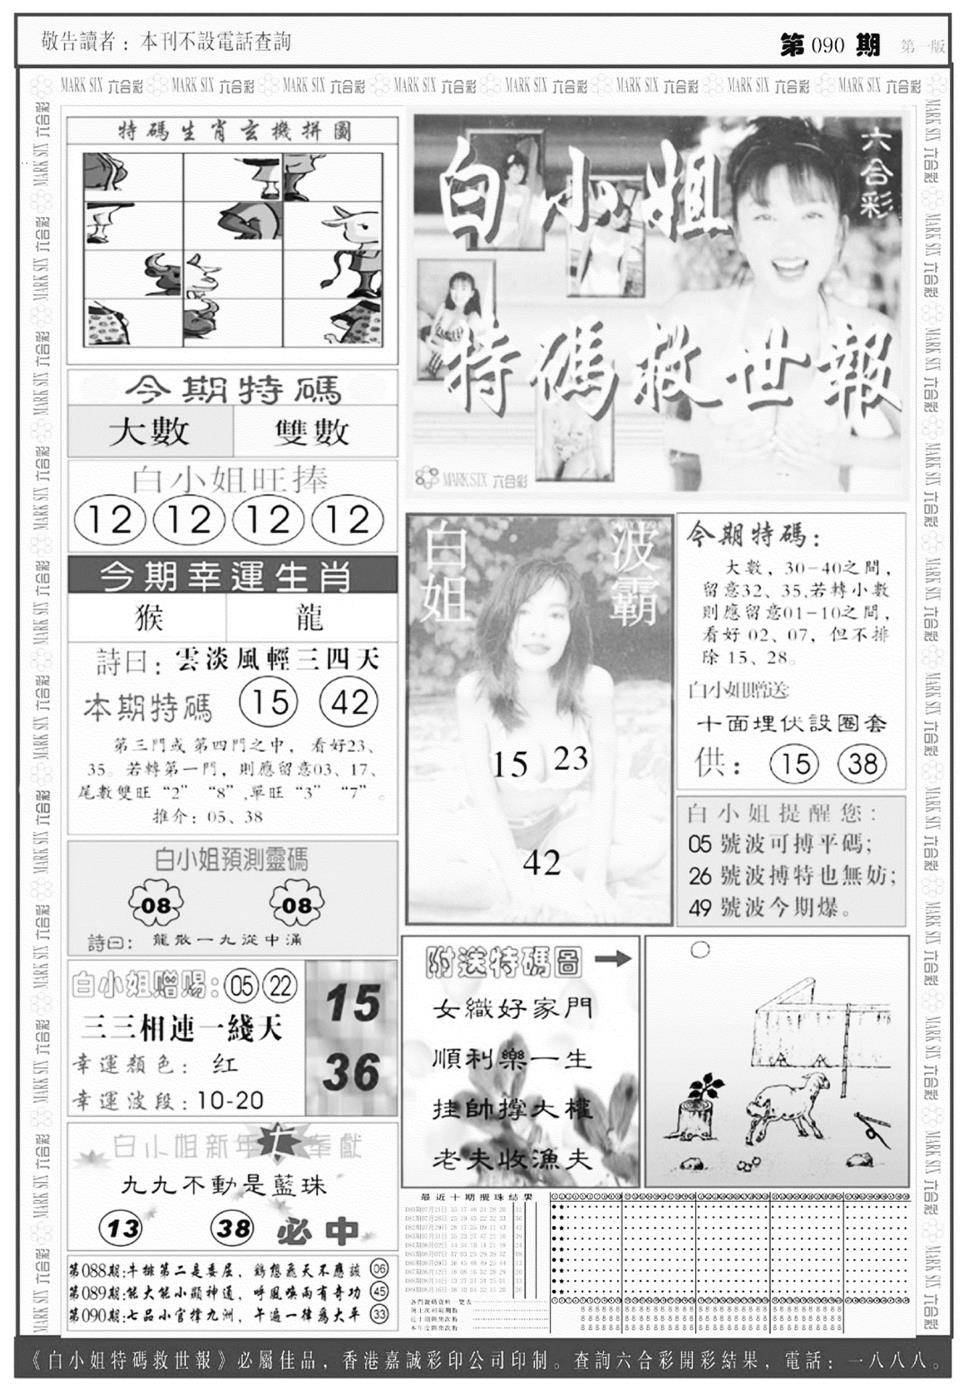 敬告讀者：本刊不設電話查詢
第090期 第一版
MARK SIX 六合彩 MARK SIX 六合彩 MARK SIX 六合彩 MARK SIX 六合彩 MARK SIX 六合彩 MARK SIX 六合彩 MARK SIX 六合彩 MARK SIX 六合彩
特碼生肖玄機拼圖
今期特碼
大數 雙數
白小姐旺捧
12 12 12 12
今期幸運生肖
猴 龍
詩曰：雲淡風輕三四天
本期特碼 15 42
第三門或第四門之中，看好23、
35。若轉第一門，則應留意03、17、
尾數雙旺“2”“8”，單旺“3”“7”。
推介：05、38
白小姐預測靈碼
08 08
詩曰：龍散一九從中涌
白小姐赠赐：05 22
三三相連一綫天
幸運顏色：红
幸運波段：10-20
15
36
白小姐新年七奉獻
九九不動是藍珠
13 38 必中
第088期:牛排第二是委屈，鶴想飛天不應該 06
第089期:能大能小顯神通，呼風喚雨有奇功 45
第090期:七品小官擇九洲，午遍一律爲太平 33
六合彩
白小姐
特碼救世報
MARK SIX 六合彩
白姐 波霸
15 23
42
今期特碼：
大數，30-40之間，
留意32、35,若轉小數
則應留意01-10之間，
看好 02、07，但不排
除 15、28。
白小姐贈送:
十面埋伏設圈套
供：15 38
白小姐提醒您：
05 號波可搏平碼；
26 號波搏特也無妨；
49 號波今期爆。
附送特碼圖
女織好家門
順利樂一生
挂帥撐大權
老夫收漁夫
最近十期攪珠結果
《白小姐特碼救世報》必屬佳品，香港嘉誠彩印公司印制。查詢六合彩開彩結果，電話：一八八八。